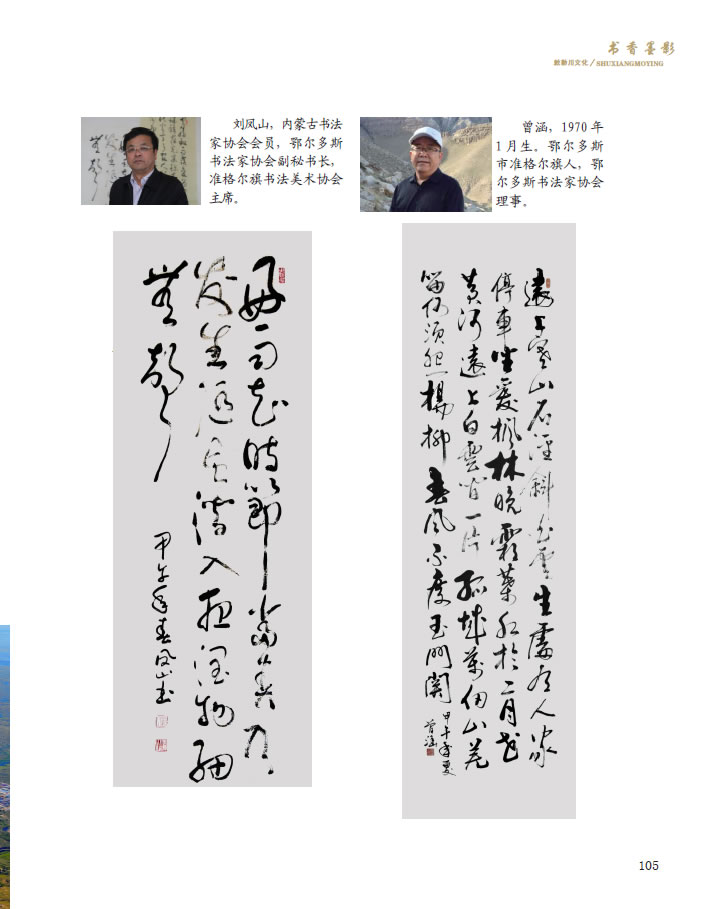 书香墨影
敕勒川文化/SHUXIANGMOYING
刘凤山，内蒙古书法
家协会会员，鄂尔多斯
书法家协会副秘书长，
准格尔旗书法美术协会
主席。
曾涵，1970 年
1 月生。鄂尔多斯
市准格尔旗人，鄂
尔多斯书法家协会
理事。
好雨知时节当春乃
发生随风潜入夜润物细
無聲
甲午年春凤山书
遠上寒山石径斜白雲生處有人家
停車坐爱枫林晚霜葉红於二月花
黄河遠上白雲间一片孤城萬仞山羌
笛何须怨楊柳春风不度玉门関
甲午年夏
曾涵
105